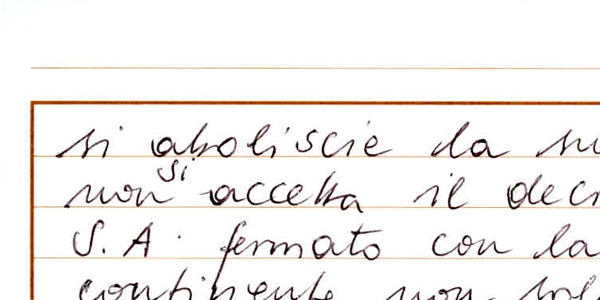 si aboliscie la
non si accetta il
S. A. fermato con la
continente non